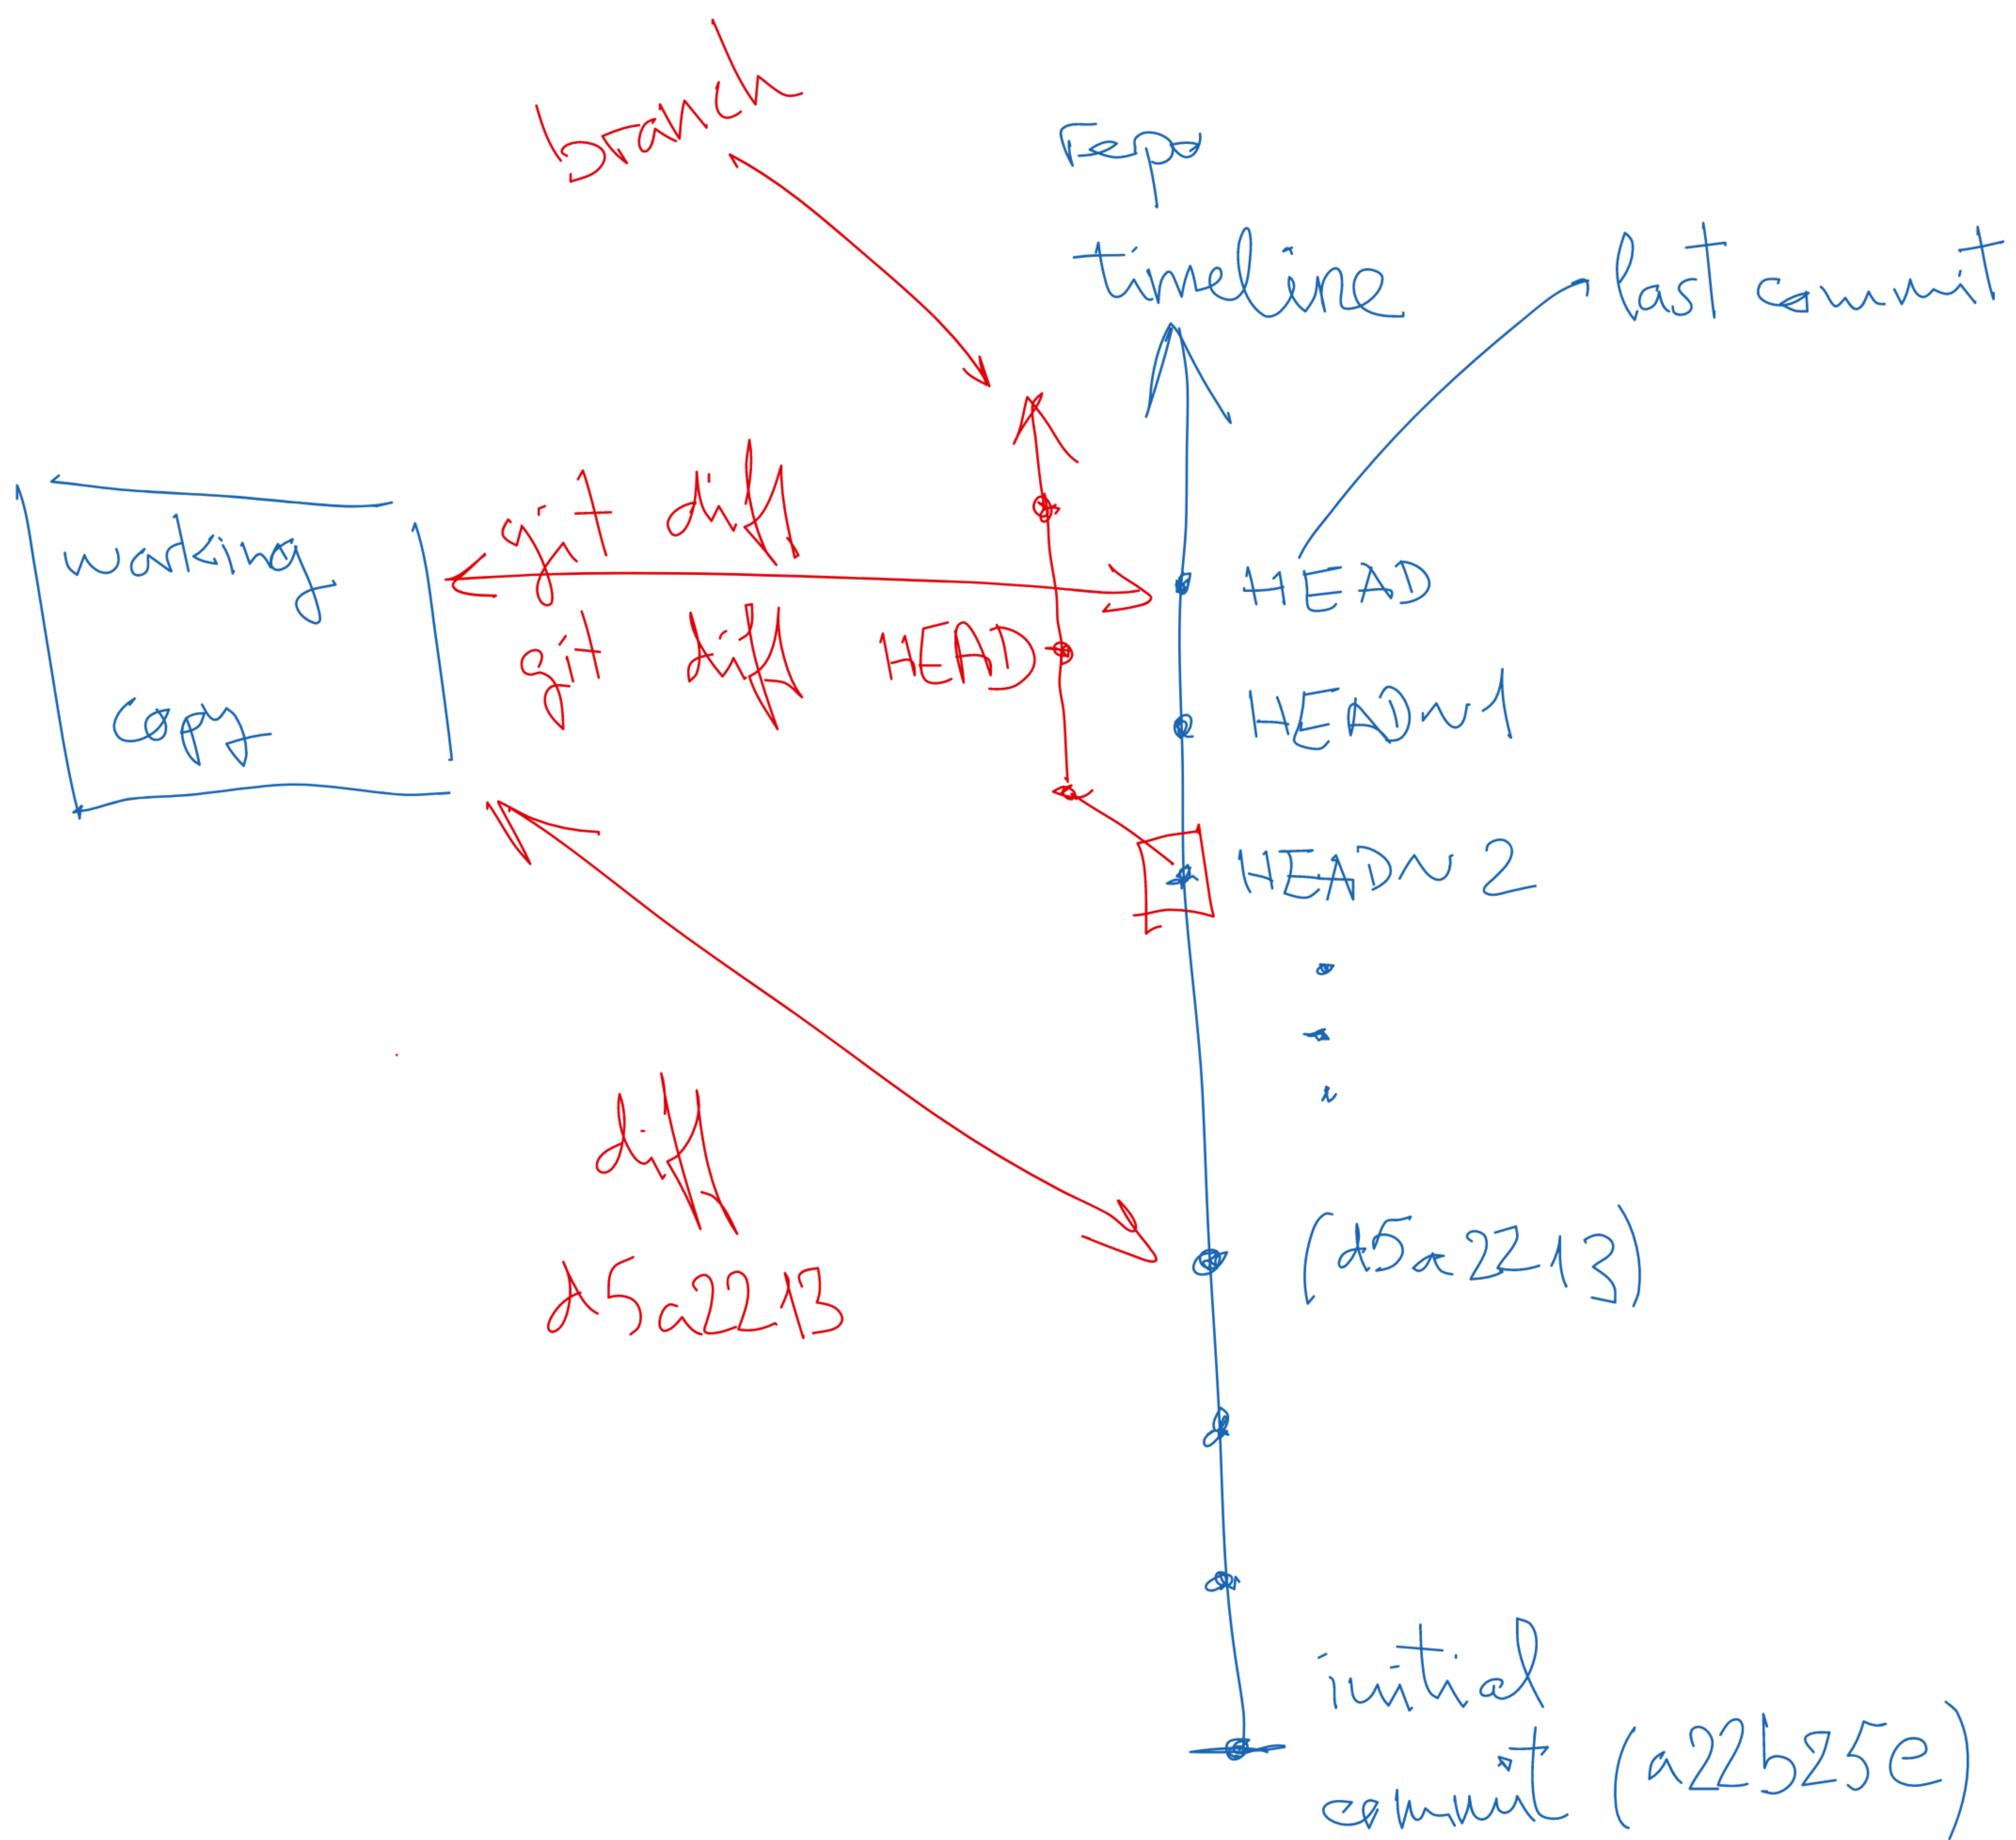 branch
repo
timeline
last commit
working
copy
git diff
git diff HEAD
HEAD
HEAD~1
HEAD~2
diff
d5a2213
(d5a2213)
initial
commit (a22b25e)